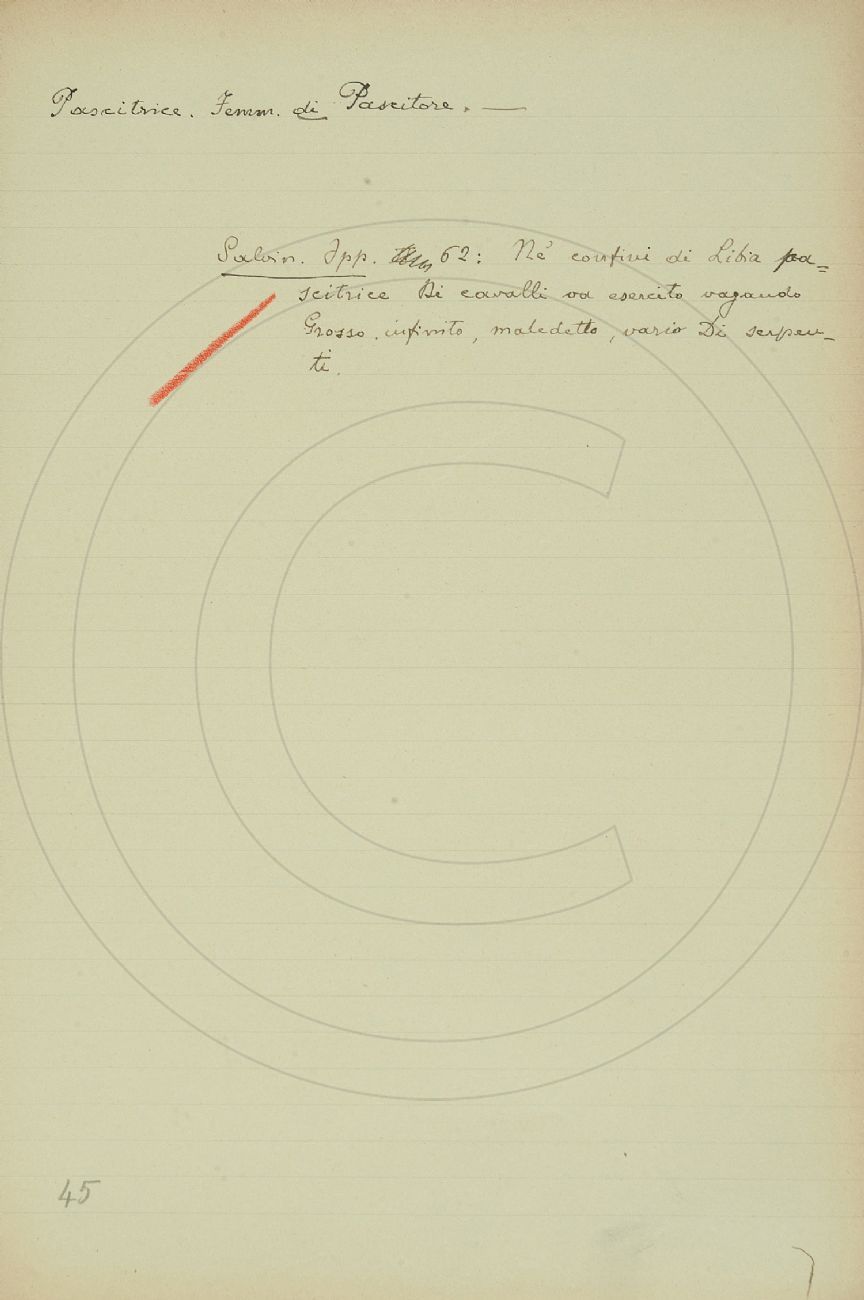 Pascitrice. Femm. di Pascitore. —
Salvin. Opp. 62: Ne' confini di Libia pa=
scitrice Di cavalli va esercito vagando
Grosso, infinito, maledetto, vario Di serpen-
ti.
45